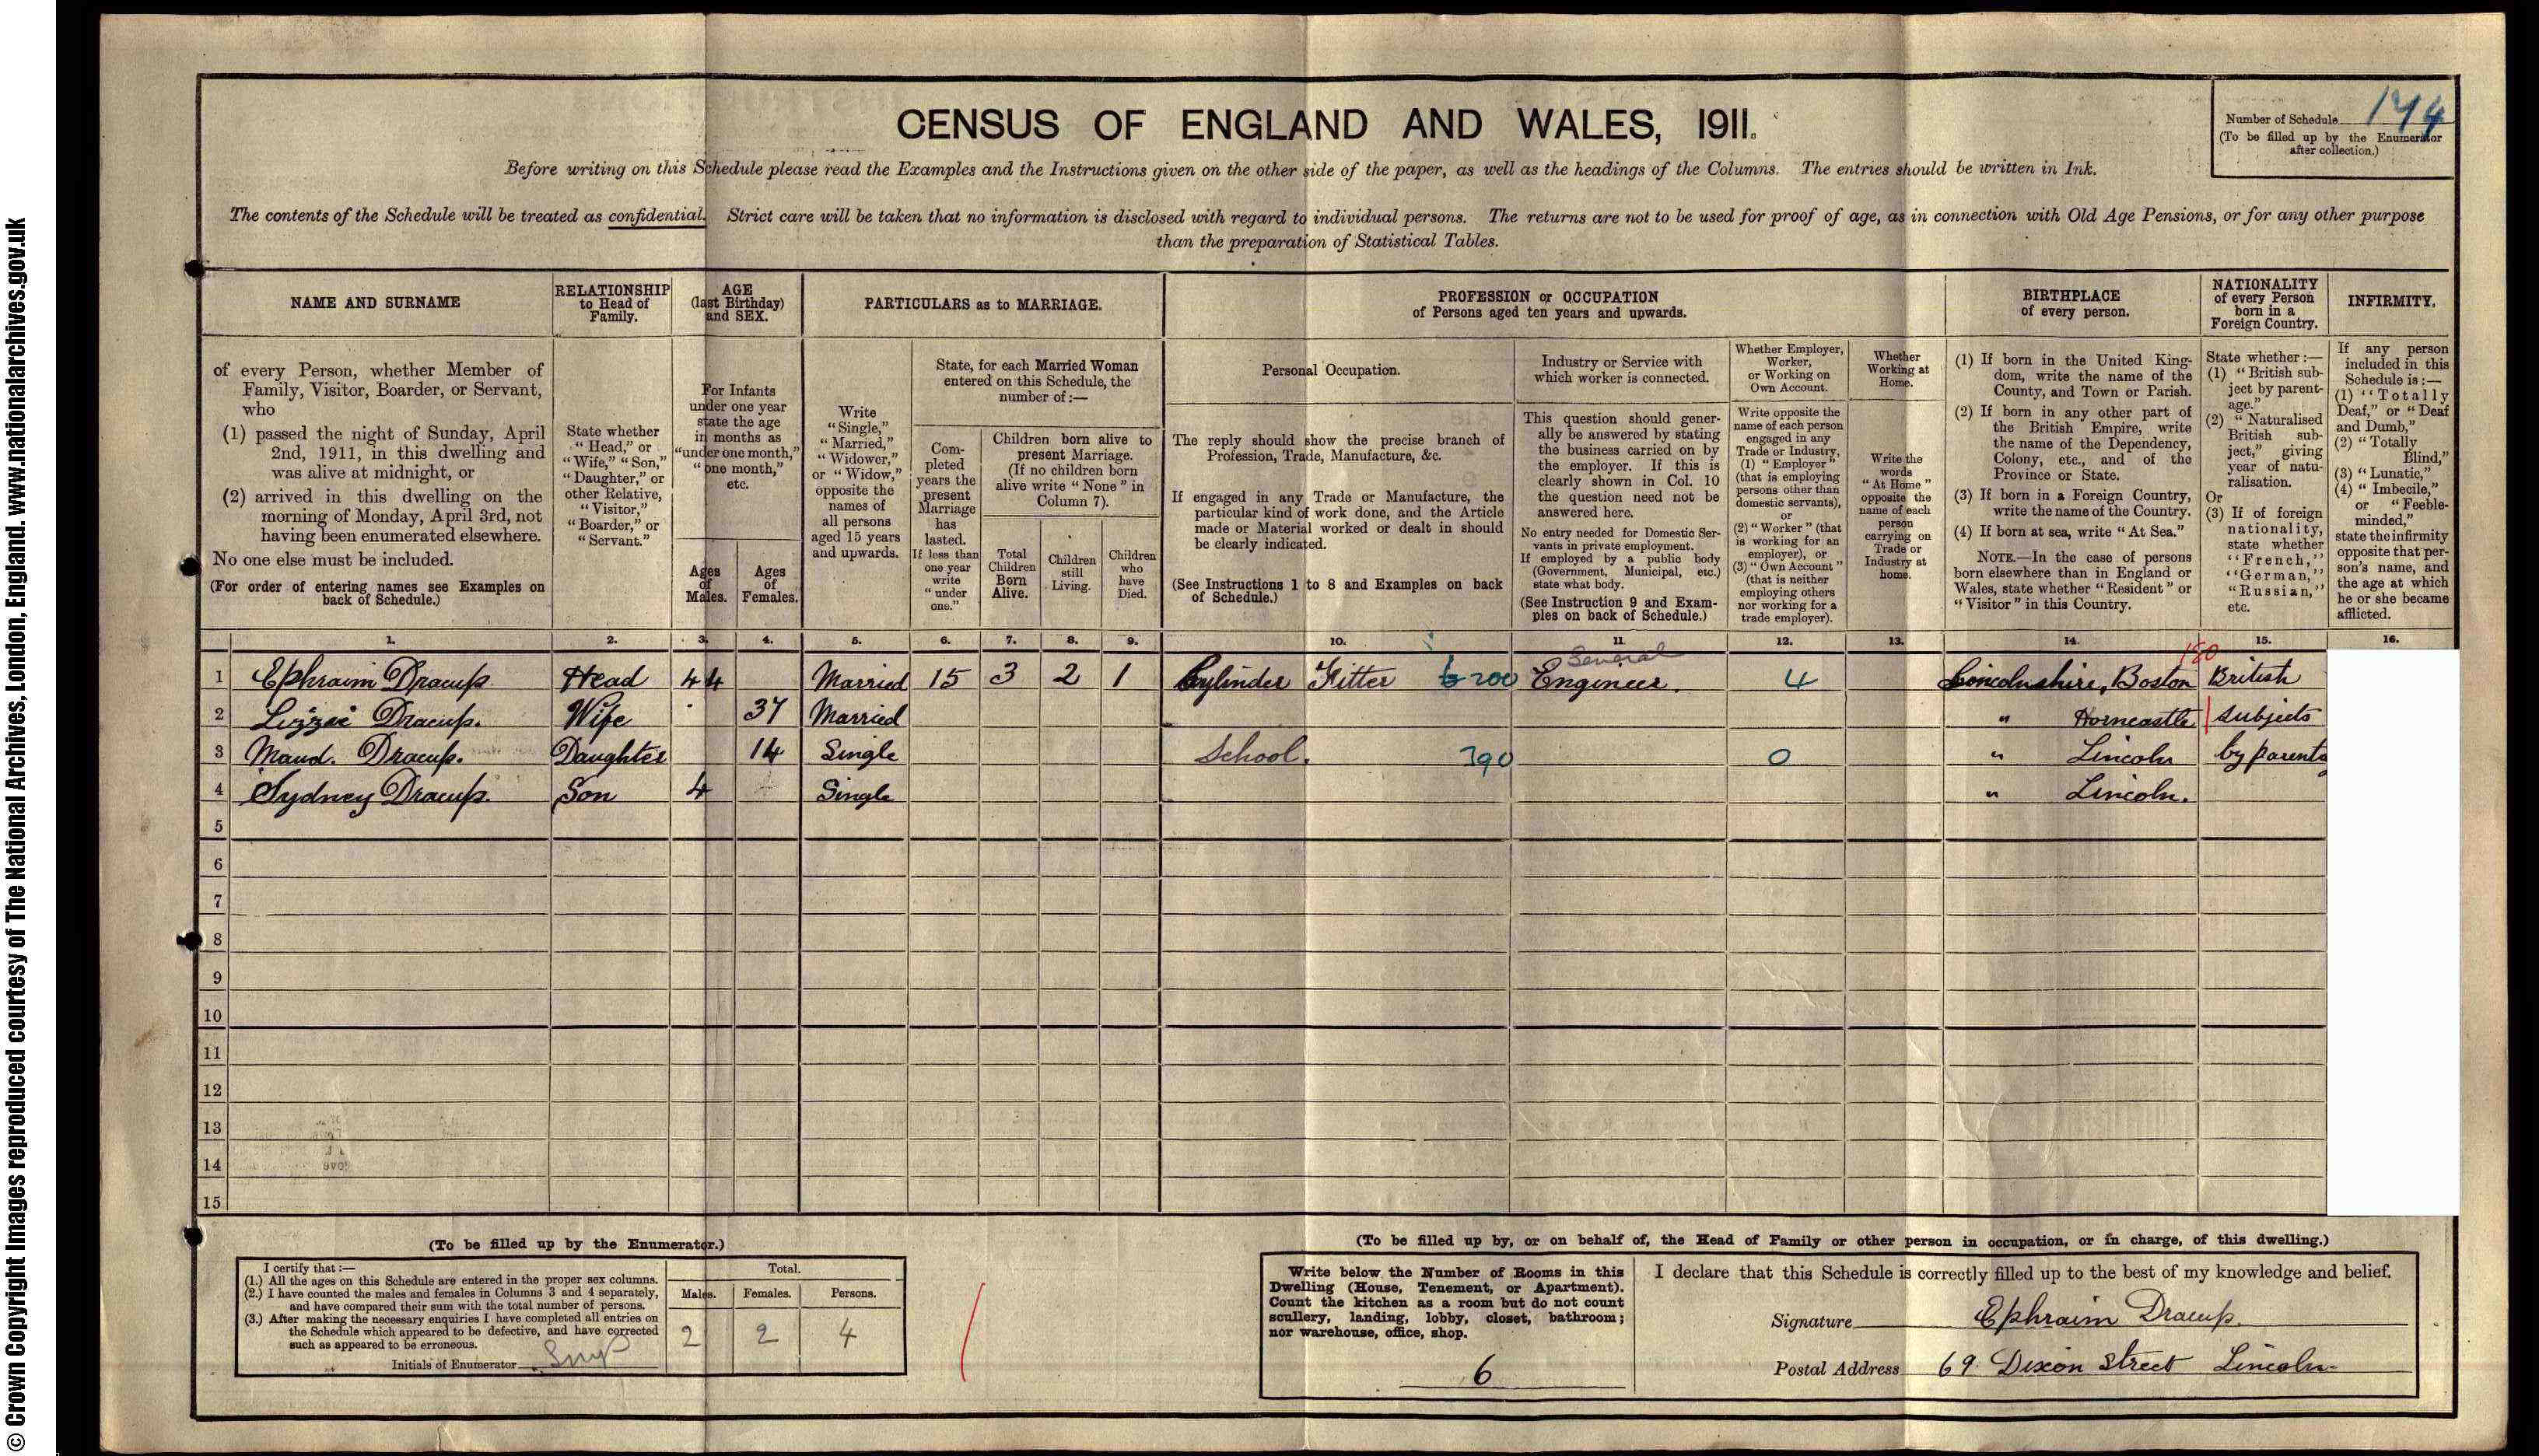 © Crown Copyright Images reproduced courtesy of The National Archives, London, England. www.nationalarchives.gov.uk
CENSUS OF ENGLAND AND WALES, 1911.
Number of Schedule 174
(To be filled up by the Enumerator
after collection.)
Before writing on this Schedule please read the Examples and the Instructions given on the other side of the paper, as well as the headings of the Columns. The entries should be written in Ink.
The contents of the Schedule will be treated as confidential. Strict care will be taken that no information is disclosed with regard to individual persons. The returns are not to be used for proof of age, as in connection with Old Age Pensions, or for any other purpose
than the preparation of Statistical Tables.
NAME AND SURNAME
of every Person, whether Member of
Family, Visitor, Boarder, or Servant,
who
(1) passed the night of Sunday, April
2nd, 1911, in this dwelling and
was alive at midnight, or
(2) arrived in this dwelling on the
morning of Monday, April 3rd, not
having been enumerated elsewhere.
No one else must be included.
(For order of entering names see Examples on
back of Schedule.)
RELATIONSHIP
to Head of
Family.
State whether
"Head," or
"Wife," "Son,"
"Daughter," or
other Relative,
"Visitor,"
"Boarder," or
"Servant."
AGE
(last Birthday)
and SEX.
For Infants
under one year
state the age
in months as
"under one month,"
"one month,"
etc.
Ages
of
Males.
Ages
of
Females.
PARTICULARS as to MARRIAGE.
Write
"Single,"
"Married,"
"Widower,"
or "Widow,"
opposite the
names of
all persons
aged 15 years
and upwards.
State, for each Married Woman
entered on this Schedule, the
number of:—
Com-
pleted
years the
present
Marriage
has
lasted.
If less than
one year
write
"under
one."
Children born alive to
present Marriage.
(If no children born
alive write "None" in
Column 7).
Total
Children
Born
Alive.
Children
still
Living.
Children
who
have
Died.
PROFESSION or OCCUPATION
of Persons aged ten years and upwards.
Personal Occupation.
The reply should show the precise branch of
Profession, Trade, Manufacture, &c.
If engaged in any Trade or Manufacture, the
particular kind of work done, and the Article
made or Material worked or dealt in should
be clearly indicated.
(See Instructions 1 to 8 and Examples on back
of Schedule.)
Industry or Service with
which worker is connected.
This question should gener-
ally be answered by stating
the business carried on by
the employer. If this is
clearly shown in Col. 10
the question need not be
answered here.
No entry needed for Domestic Ser-
vants in private employment.
If employed by a public body
(Government, Municipal, etc.)
state what body.
(See Instruction 9 and Exam-
ples on back of Schedule.)
Whether Employer,
Worker,
or Working on
Own Account.
Write opposite the
name of each person
engaged in any
Trade or Industry,
(1) "Employer"
(that is employing
persons other than
domestic servants),
or
(2) "Worker" (that
is working for an
employer), or
(3) "Own Account"
(that is neither
employing others
nor working for a
trade employer).
Whether
Working at
Home.
Write the
words
"At Home"
opposite the
name of each
person
carrying on
Trade or
Industry at
home.
BIRTHPLACE
of every person.
(1) If born in the United King-
dom, write the name of the
County, and Town or Parish.
(2) If born in any other part of
the British Empire, write
the name of the Dependency,
Colony, etc., and of the
Province or State.
(3) If born in a Foreign Country,
write the name of the Country.
(4) If born at sea, write "At Sea."
NOTE.—In the case of persons
born elsewhere than in England or
Wales, state whether "Resident" or
"Visitor" in this Country.
NATIONALITY
of every Person
born in a
Foreign Country.
State whether:—
(1) "British sub-
ject by parent-
age."
(2) "Naturalised
British sub-
ject," giving
year of natu-
ralisation.
Or
(3) If of foreign
nationality,
state whether
"French,"
"German,"
"Russian,"
etc.
INFIRMITY.
If any person
included in this
Schedule is:—
(1) "Totally
Deaf," or "Deaf
and Dumb,"
(2) "Totally
Blind,"
(3) "Lunatic,"
(4) "Imbecile,"
or "Feeble-
minded,"
state the infirmity
opposite that per-
son's name, and
the age at which
he or she became
afflicted.
1. 2. 3. 4. 5. 6. 7. 8. 9. 10. 11 12. 13. 14. 15. 16.
General 180
1 Ephraim Dracup Head 44 Married 15 3 2 1 Cylinder Fitter 200 Engineer. 4 Lincolnshire, Boston British
2 Lizzie Dracup. Wife 37 Married " Horncastle subjects
3 Maud. Dracup. Daughter 14 Single School. 390 0 " Lincoln by parents
4 Sydney Dracup. Son 4 Single " Lincoln.
5
6
7
8
9
10
11
12
13
14
15
(To be filled up by the Enumerator.)
I certify that:—
(1.) All the ages on this Schedule are entered in the proper sex columns.
(2.) I have counted the males and females in Columns 3 and 4 separately,
and have compared their sum with the total number of persons.
(3.) After making the necessary enquiries I have completed all entries on
the Schedule which appeared to be defective, and have corrected
such as appeared to be erroneous.
Initials of Enumerator
Total.
Males. Females. Persons.
2 2 4
(To be filled up by, or on behalf of, the Head of Family or other person in occupation, or in charge, of this dwelling.)
Write below the Number of Rooms in this
Dwelling (House, Tenement, or Apartment).
Count the kitchen as a room but do not count
scullery, landing, lobby, closet, bathroom;
nor warehouse, office, shop.
6
I declare that this Schedule is correctly filled up to the best of my knowledge and belief.
Signature Ephraim Dracup.
Postal Address 69. Dixon Street Lincoln.